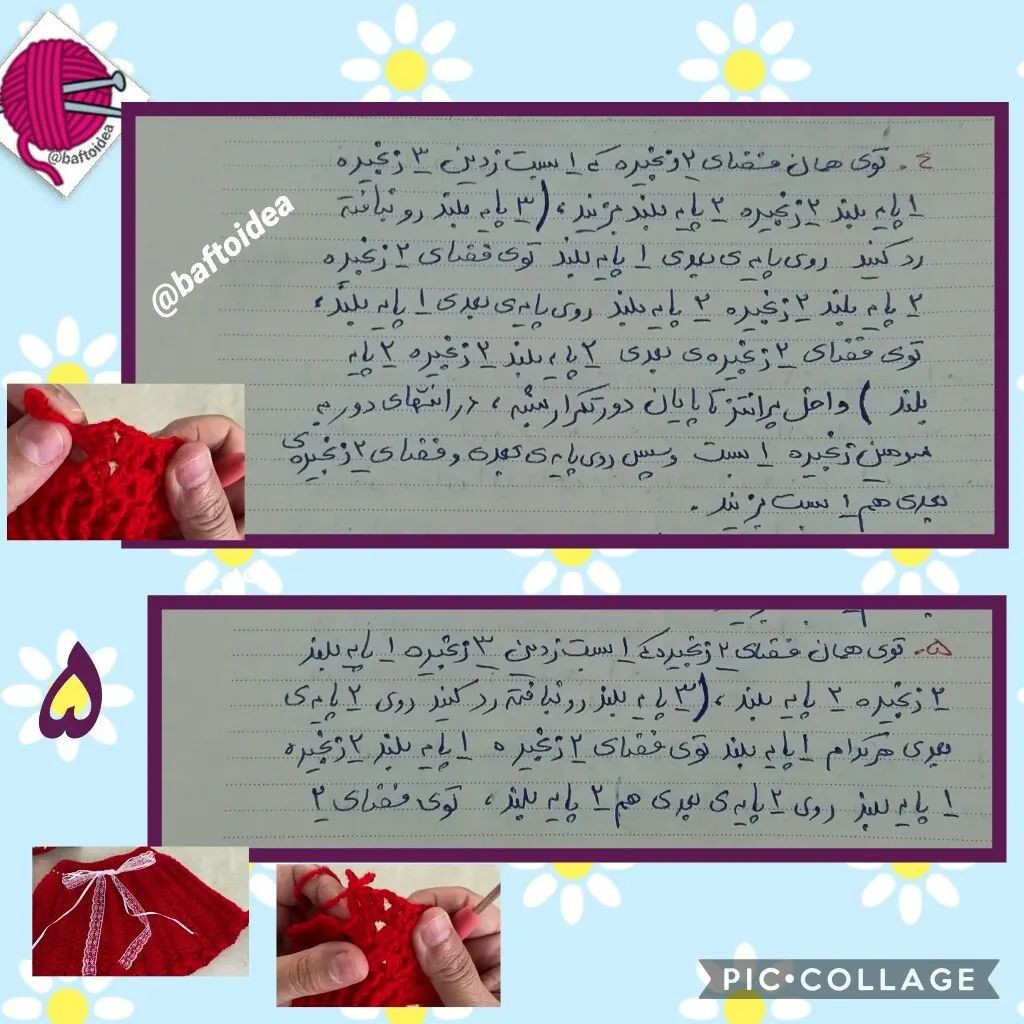 @baftoidea
@baftoidea
٤. توی همان فضای ۲ زنجیره که ۱ بست زدین ۳ زنجیره
۱ پایه بلند ۲ زنجیره ۲ پایه بلند بزنید، (۳ پایه بلند رو نبافته
رد کنید روی پایه ی بعدی ۱ پایه بلند توی فضای ۲ زنجیره
۲ پایه بلند ۲ زنجیره ۲ پایه بلند روی پایه ی بعدی ۱ پایه بلند،
توی فضای ۲ زنجیره ی بعدی ۲ پایه بلند ۲ زنجیره ۲ پایه
بلند ) داخل پرانتز تا پایان دور تکرار بشه ، در انتهای دور به
سومین زنجیره ۱ بست و سپس روی پایه ی بعدی و فضای ۲ زنجیره ی
بعدی هم ۱ بست بزنید.
۵
۵. توی همان فضای ۲ زنجیره که ۱ بست زدین ۳ زنجیره ۱ پایه بلند
۲ زنجیره ۲ پایه بلند ، (۳ پایه بلند رو نبافته رد کنید روی ۲ پایه ی
بعدی هرکدام ۱ پایه بلند توی فضای ۲ زنجیره ۱ پایه بلند ۲ زنجیره
۱ پایه بلند روی ۲ پایه ی بعدی هم ۲ پایه بلند ، توی فضای ۲
PIC•COLLAGE